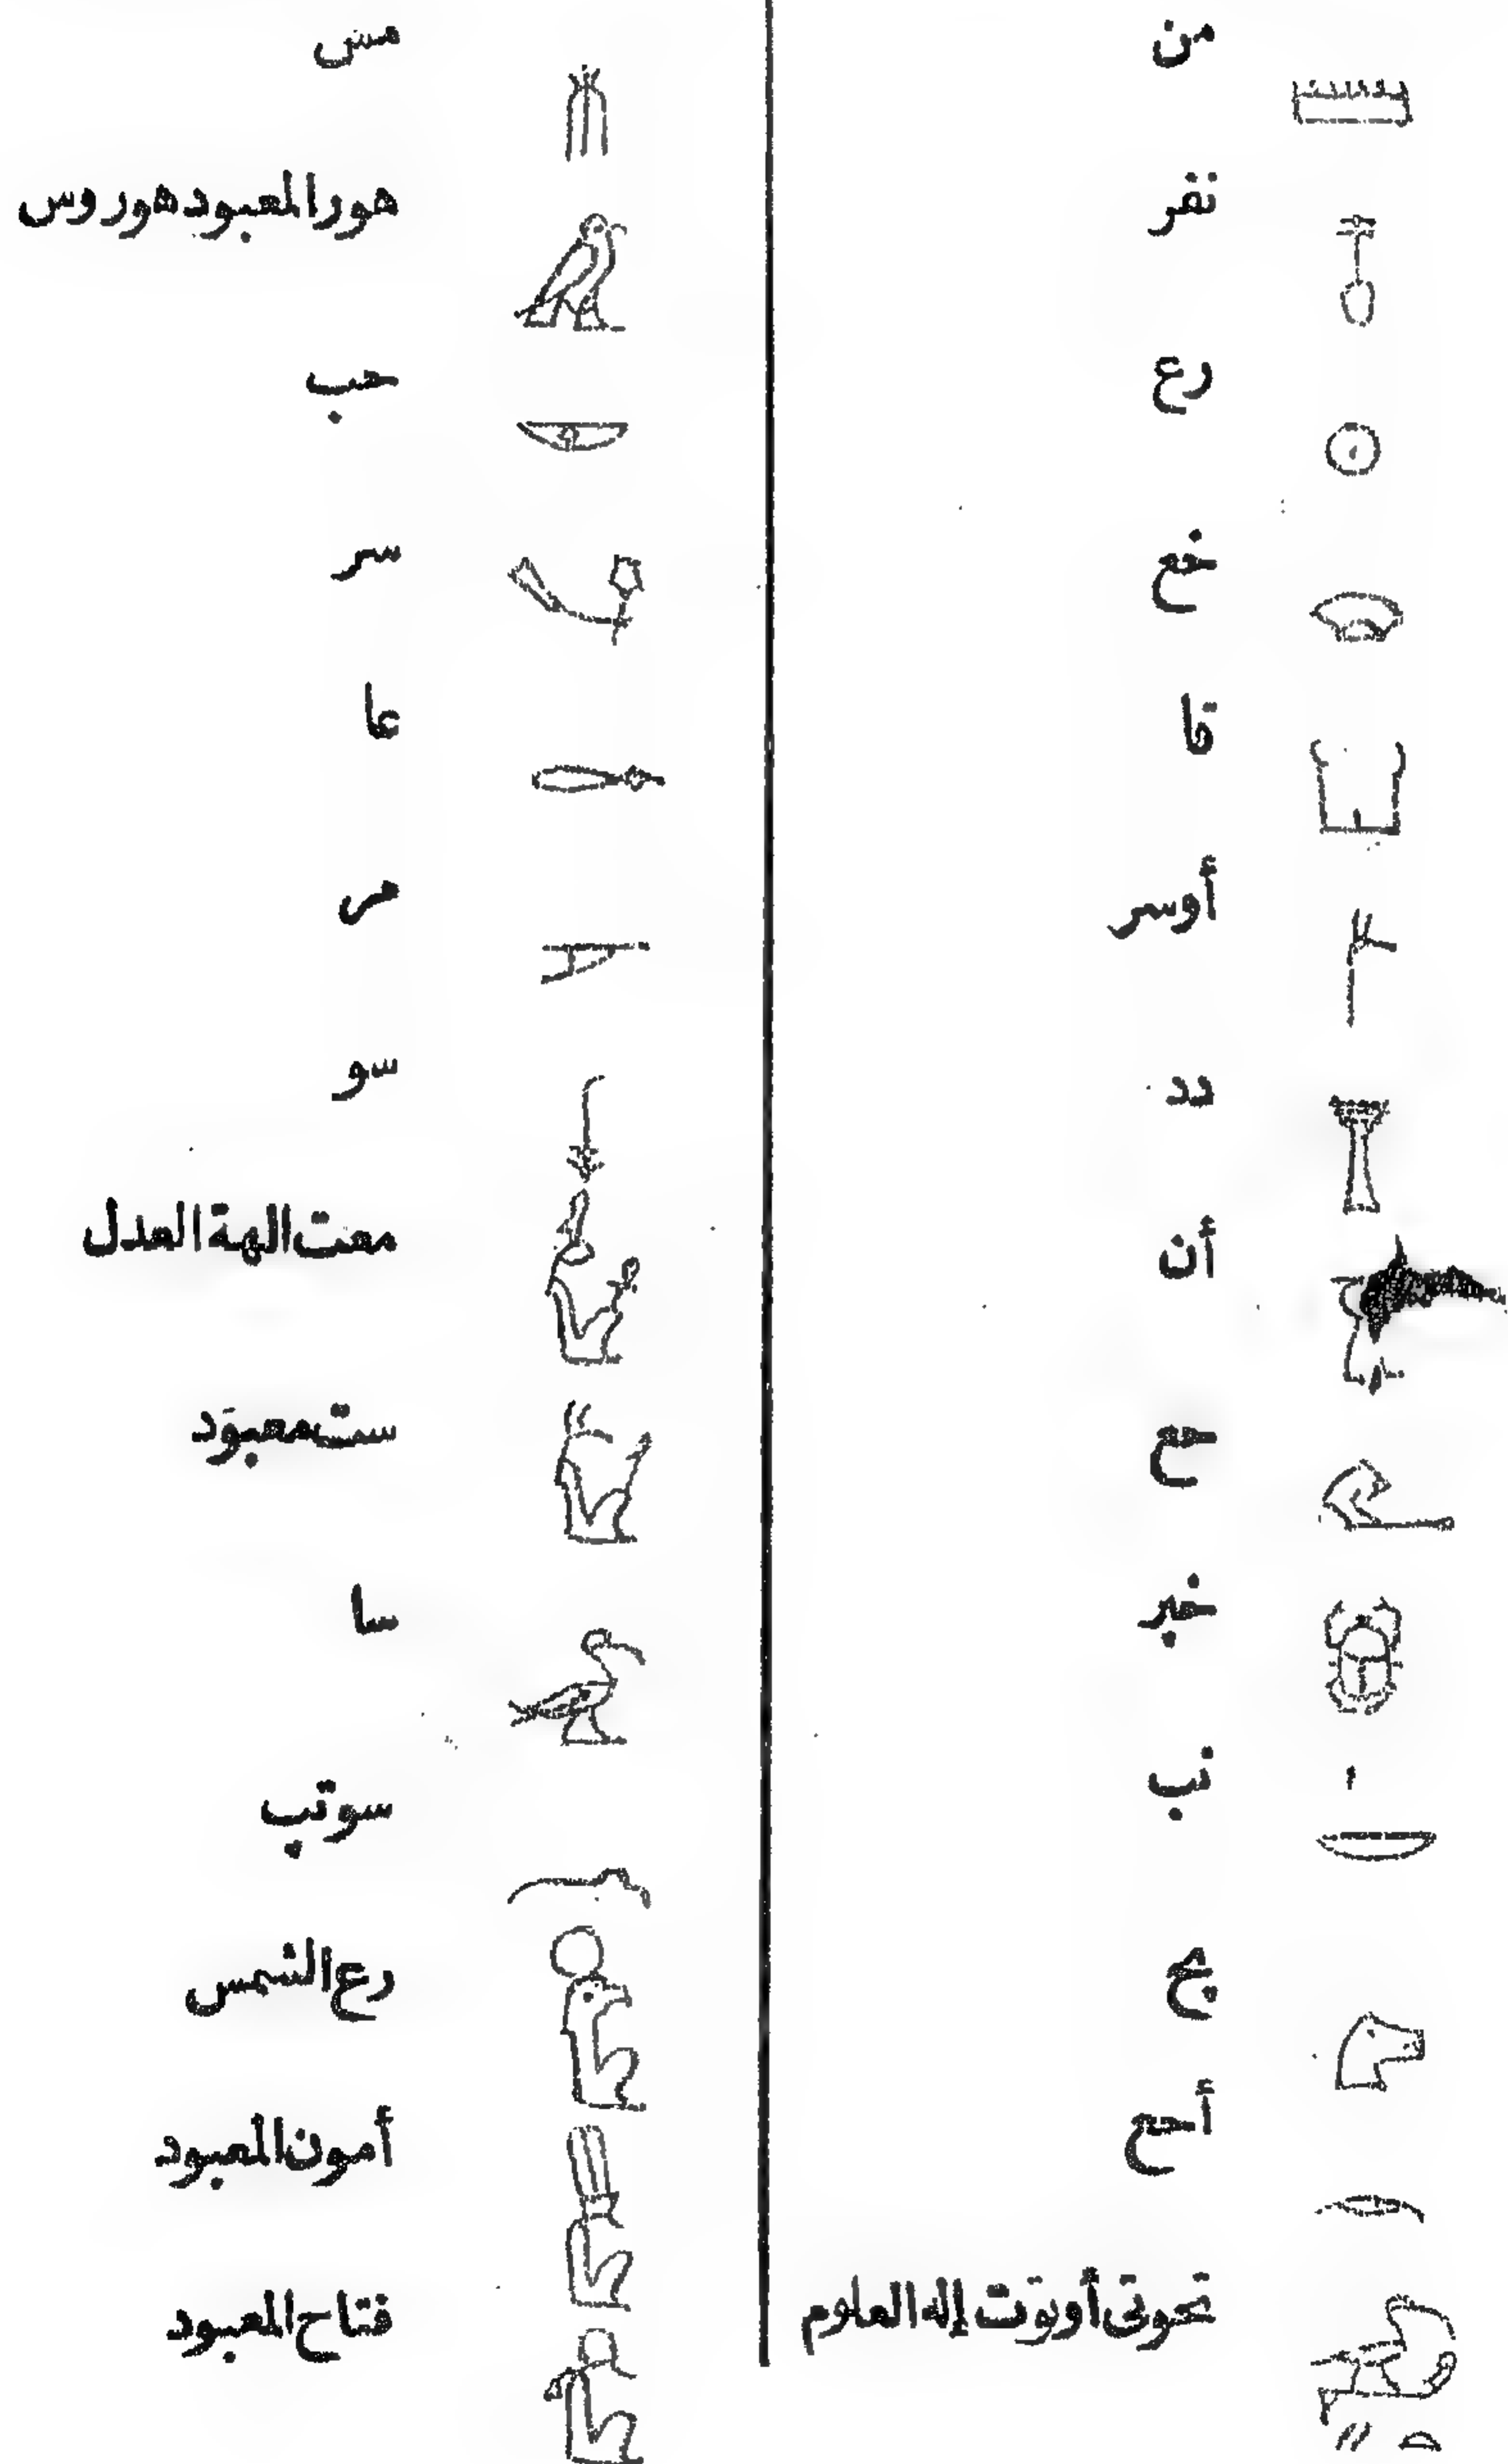 من
نفر
رع
خع
قا
أوسر
دد
أن
حع
خپر
نب
أحع
تحوتى أوتوت إله العلوم
مس
هور المعبود هوروس
حب
سر
عا
مر
سو
معت الهة العدل
ست معبود
سا
سوتپ
رع الشمس
أمون المعبود
فتاح المعبود